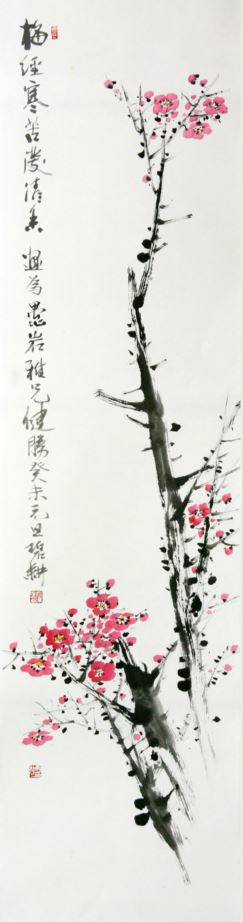 梅經寒苦發清香 為岩雅兄健勝癸未元旦耕